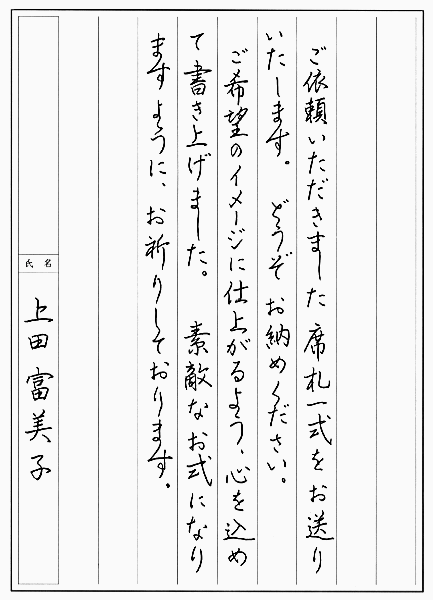 ご依頼いただきました席札一式をお送り
いたします。 どうぞお納めください。
ご希望のイメージに仕上がるよう、心を込め
て書き上げました。 素敵なお式になり
ますように、お祈りしております。
氏名
上田富美子